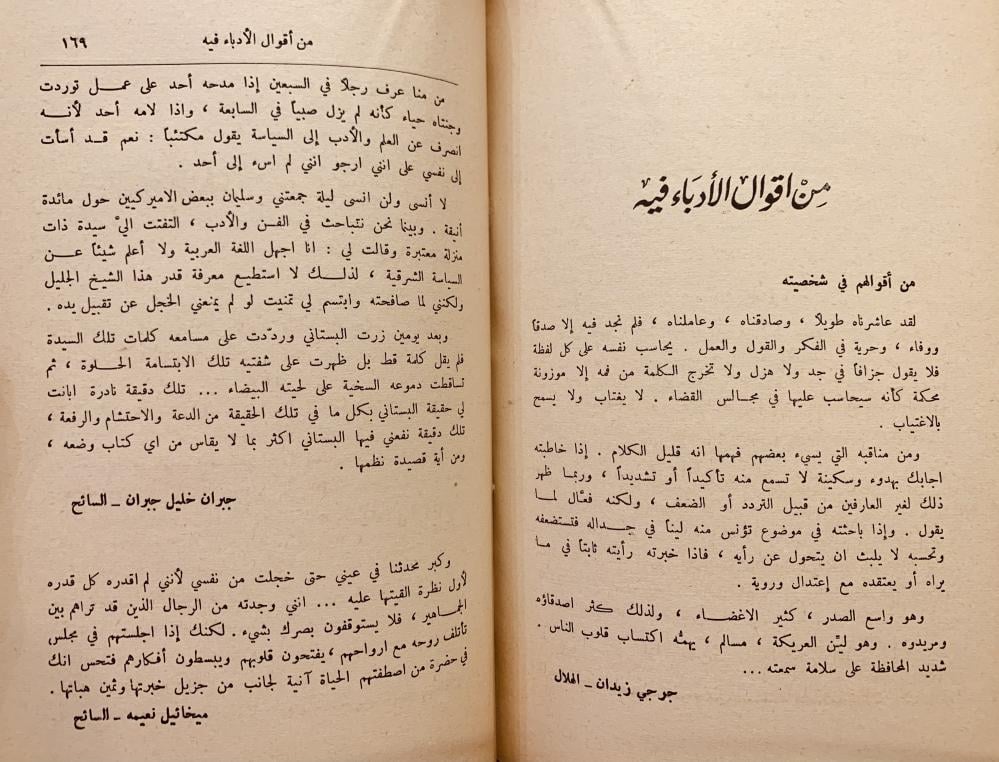 من اقوال الأدباء فيه
من أقوالهم في شخصيته
لقد عاشرناه طويلاً ، وصادقناه ، وعاملناه ، فلم نجد فيه إلا صدقاً
ووفاء ، وحرية في الفكر والقول والعمل . يحاسب نفسه على كل لفظة
فلا يقول جزافاً في جد ولا هزل ولا تخرج الكلمة من فمه إلا موزونة
محكمة كأنه سيحاسب عليها في مجالس القضاء . لا يغتاب ولا يسمح
بالاغتياب .
ومن مناقبه التي يسيء بعضهم فهمها انه قليل الكلام . إذا خاطبته
اجابك بهدوء وسكينة لا تسمع منه تأكيداً أو تشديداً ، وربما ظهر
ذلك لغير العارفين من قبيل التردد أو الضعف ، ولكنه فعّال لما
يقول . وإذا باحثته في موضوع تؤنس منه ليناً في جداله فتستضعفه
وتحسبه لا يلبث ان يتحول عن رأيه ، فاذا خبرته رأيته ثابتاً في ما
يراه أو يعتقده مع إعتدال وروية .
وهو واسع الصدر ، كثير الاغضاء ، ولذلك كثر اصدقاؤه
ومريدوه . وهو ليّن العريكة ، مسالم ، يهمّه اكتساب قلوب الناس .
شديد المحافظة على سلامة سمعته ...
جورجي زيدان ـ الهلال
من أقوال الأدباء فيه ١٦٩
من منا عرف رجلاً في السبعين إذا مدحه أحد على عمل توردت
وجنتاه حياء كأنه لم يزل صبياً في السابعة ، واذا لامه أحد لأنه
انصرف عن العلم والأدب إلى السياسة يقول مكتئباً : نعم قد أسأت
إلى نفسي على انني ارجو انني لم اسىء إلى أحد .
لا أنسى ولن انسى ليلة جمعتني وسليمان ببعض الاميركيين حول مائدة
أنيقة . وبينما نحن نتباحث في الفن والأدب ، التفتت اليّ سيدة ذات
منزلة معتبرة وقالت لي : انا اجهل اللغة العربية ولا أعلم شيئاً عن
السياسة الشرقية ، لذلك لا استطيع معرفة قدر هذا الشيخ الجليل
ولكنني لما صافحته وابتسم لي تمنيت لو لم يمنعني الخجل عن تقبيل يده .
وبعد يومين زرت البستاني وردّدت على مسامعه كلمات تلك السيدة
فلم يقل كلمة قط بل ظهرت على شفتيه تلك الابتسامة الحلوة ، ثم
تساقطت دموعه السخية على لحيته البيضاء ... تلك دقيقة نادرة ابانت
لي حقيقة البستاني بكل ما في تلك الحقيقة من الدعة والاحتشام والرفعة ،
تلك دقيقة نفعني فيها البستاني اكثر بما لا يقاس من اي كتاب وضعه ،
ومن أية قصيدة نظمها .
جبران خليل جبران ـ السائح
وكبر محدثنا في عيني حتى خجلت من نفسي لأنني لم اقدره كل قدره
لأول نظرة القيتها عليه ... انني وجدته من الرجال الذين قد تراهم بين
الجماهير ، فلا يستوقفون بصرك بشيء . لكنك إذا اجلستهم في مجلس
تأتلف روحه مع ارواحهم ، يفتحون قلوبهم ويبسطون أفكارهم فتحس انك
في حضرة من اصطفتهم الحياة آنية لجانب من جزيل خبرتها وثمين هباتها .
ميخائيل نعيمه ـ السائح